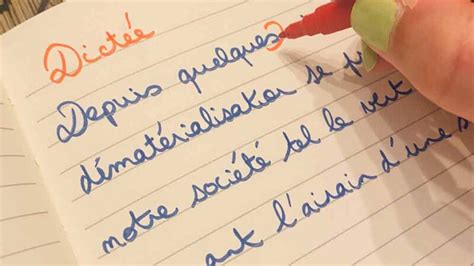 Dictée
Depuis quelques
dématérialisation se
notre société tel le vert
ant l'airain d'une